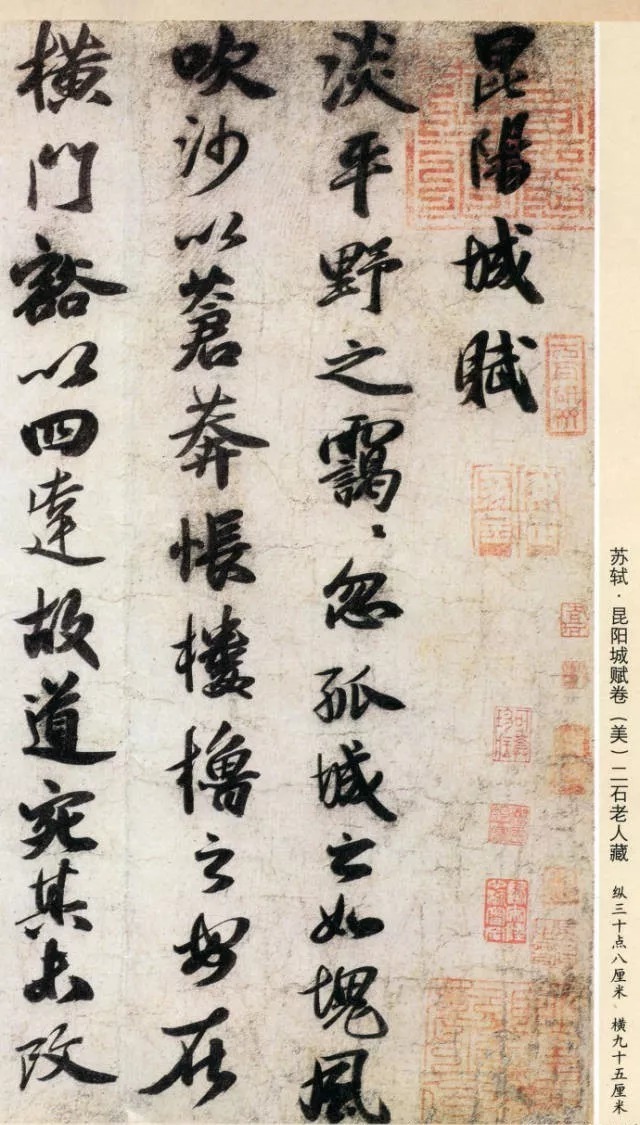 昆陽城賦
淡平野之靄〻忽孤城之如塊風
吹沙以蒼莽悵樓櫓之安在
橫門豁以四達故道宛其未改
苏轼·昆阳城赋卷（美）二石老人藏 纵三十点八厘米 横九十五厘米